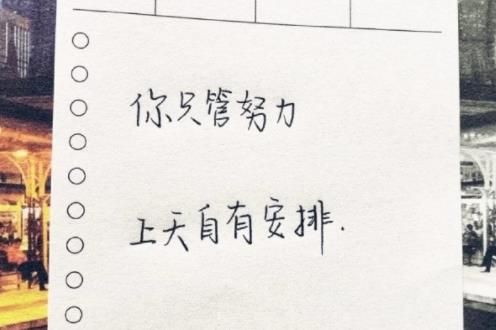 你只管努力
上天自有安排.